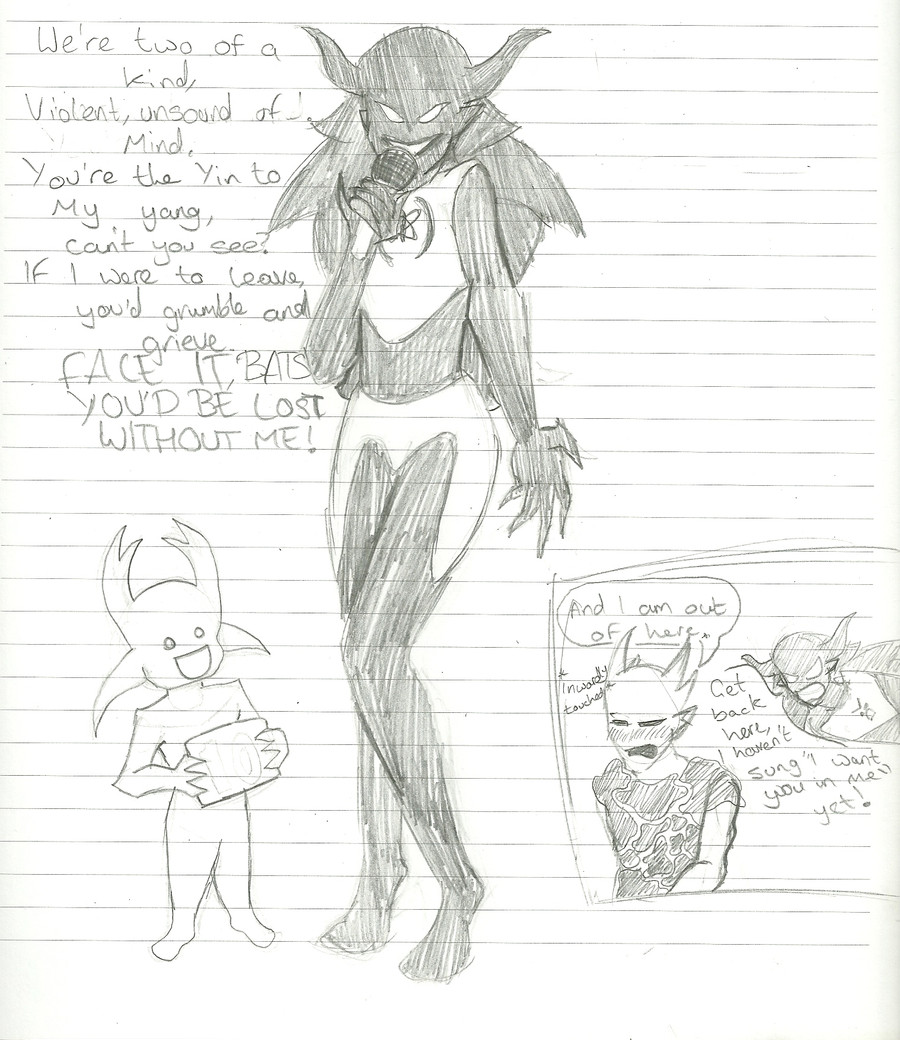 We're two of a
kind,
Violent, unsound of
Mind.
You're the Yin to
My yang,
can't you see?
If I were to leave,
you'd grumble and
grieve.
FACE IT, BATS
YOU'D BE LOST
WITHOUT ME!
10
And I am out
of here.
*Inwardly
touched*
Get
back
here,
I haven't
sung "I want
you in me"
yet!